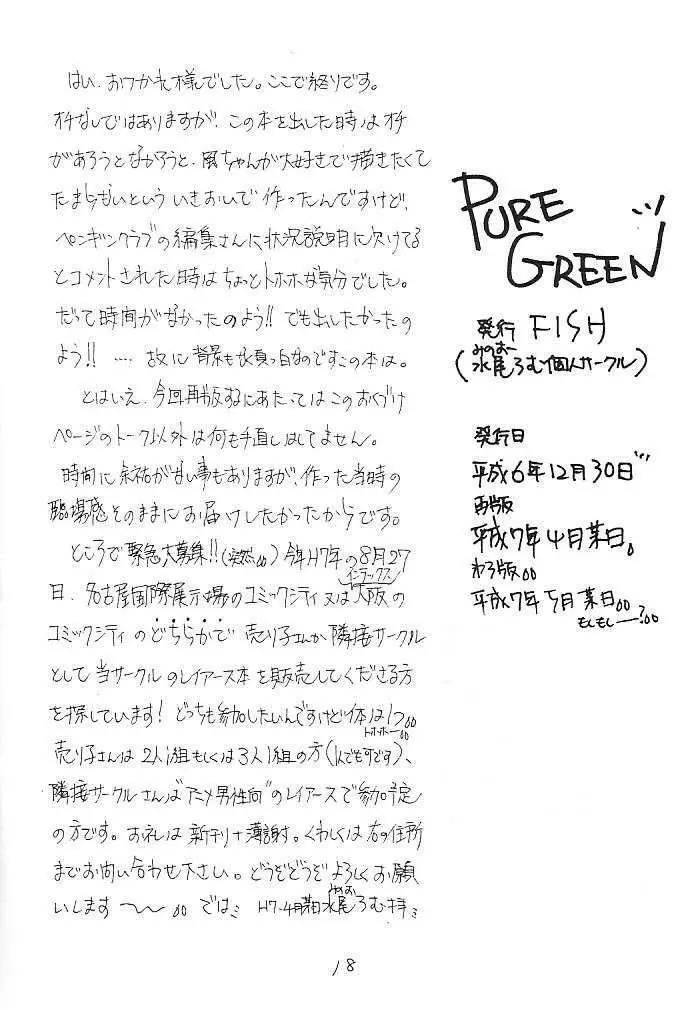 はい、おつかれ様でした。ここで終りです。
オチなしではありますが、この本を出した時はオチ
があろうとなかろうと、風ちゃんが大好きで描きたくて
たまらないという いきおいで 作ったんですけど、
ペンギンクラブの編集さんに状況説明に欠けてる
とコメントされた時はちょっとトホホな気分でした。
だって時間がなかったのよう!! でも出したかったの
よう!! …. 故に背景も真っ白なのですこの本は。
とはいえ、今回再版するにあたってはこのおくづけ
ページのトーク以外は何も手直しはしてません。
時間に余裕が甘い事もありますが、作った当時の
臨場感そのままにお届けしたかったからです。
ところで緊急大募集!! (突然。。) 今年H7年の8月27
日、名古屋国際展示場のコミックシティ又は大阪の
インテックス
コミックシティ のどちらかで 売り子さんか隣接サークル
として 当サークルのレイアース本を販売してくださる方
を探しています! どっちも参加したいんですけど体は1つ。。
トホホー。。
売り子さんは 2人1組もしくは3人1組の方(1人でも可です)、
隣接サークルさんは"アニメ男性向"のレイアースで参加予定
の方です。お礼は 新刊+薄謝。くわしくは右の住所
までお問い合わせ下さい。どうぞどうぞよろしくお願
いします 〜〜 。。 では ミ H7.4月某日 水尾ろむ拝ミ
みのお
18
PURE
GREEN
発行 FISH
みのおー
(水尾ろむ個人サークル)
発行日
平成6年12月30日
再版
平成7年4月某日。
再々版。。
平成7年5月某日。。
もしもし―?。。